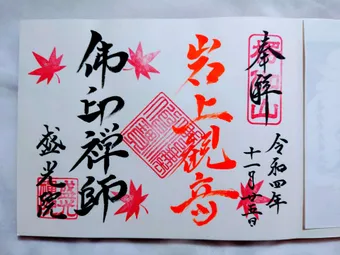 奉拜
令和四年
十一月廿五日
岩上観音
佛印禅師
盛光院